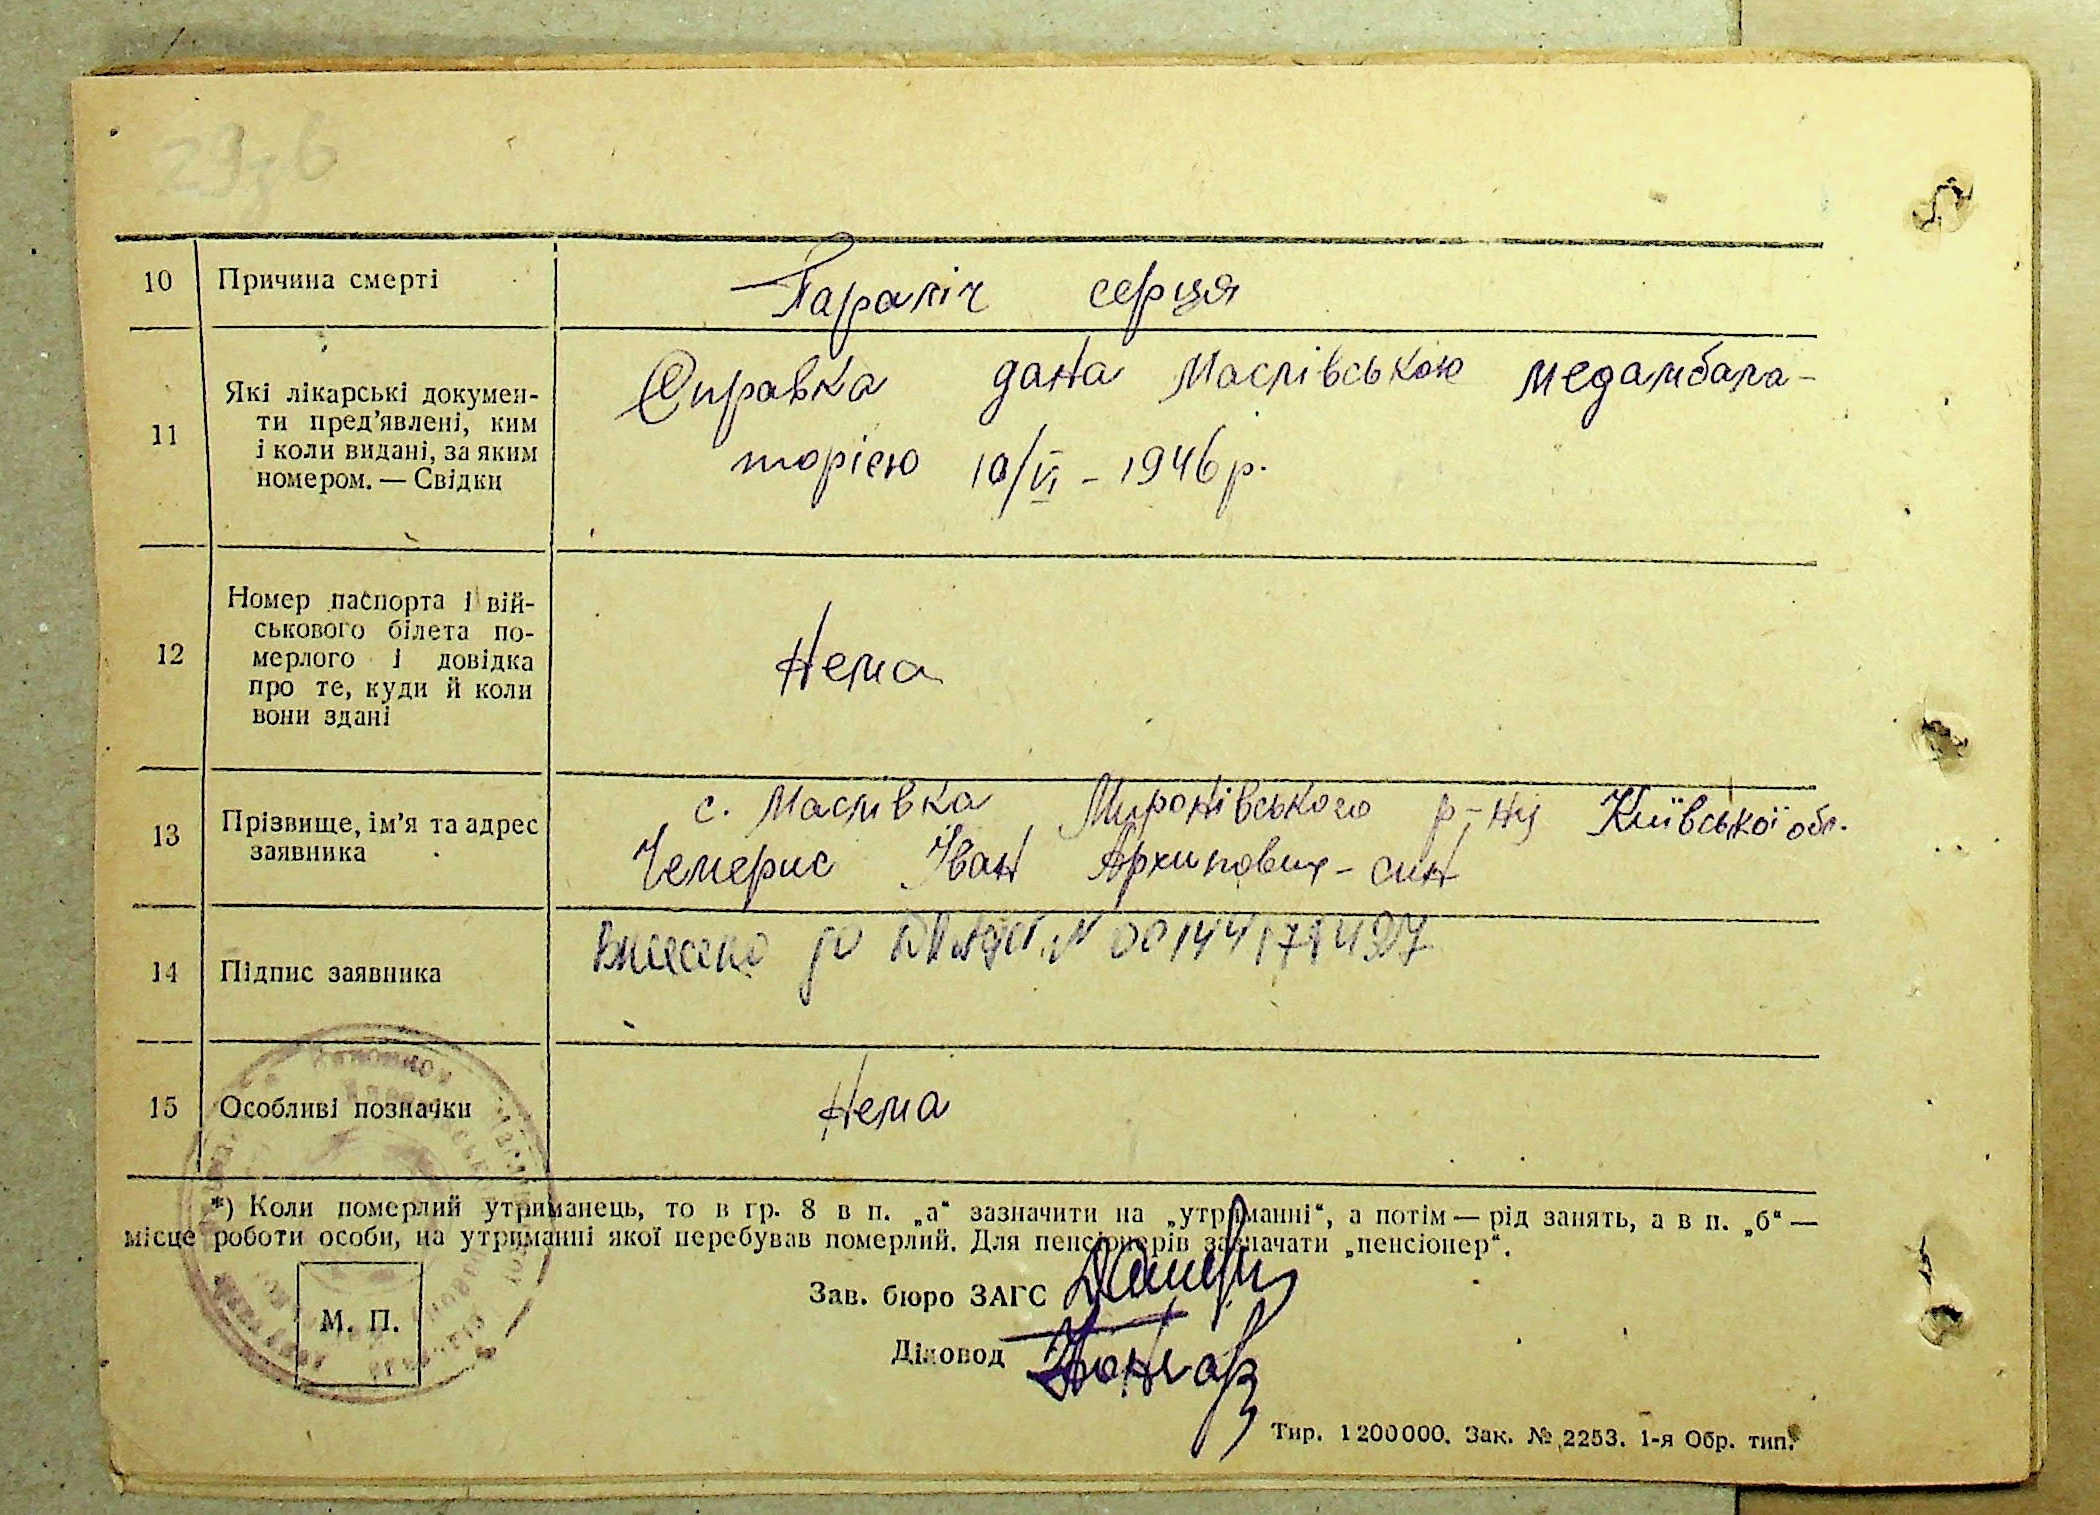 10 Причина смерті Параліч серця
11 Які лікарські докумен-
ти пред’явлені, ким
і коли видані, за яким
номером. — Свідки
Справка дана Маслівською медамбала-
торією 10/VI - 1946 р.
12 Номер паспорта і вій-
ськового білета по-
мерлого і довідка
про те, куди й коли
вони здані
Нема
13 Прізвище, ім’я та адрес
заявника
с. Маслівка Миронівського р-ну Київської обл.
Чемерис Іван Архипович - син
14 Підпис заявника
Внесено до
15 Особливі позначки Нема
*) Коли померлий утриманець, то в гр. 8 в п. „а“ зазначити на „утриманні“, а потім — рід занять, а в п. „б“ —
місце роботи особи, на утриманні якої перебував померлий. Для пенсіонерів зазначати „пенсіонер“.
Зав. бюро ЗАГС
Діловод
М. П.
Тир. 1 200 000. Зак. № 2253. 1-я Обр. тип.